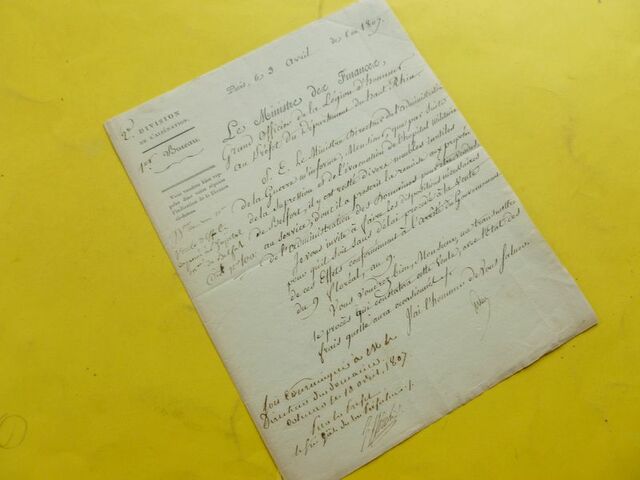 Paris, le 3 Avril de l'an 1807.
2e. DIVISION
DE L'ALIÉNATION.
1er. Bureau.
Vous voudrez bien rap-
peler dans votre réponse
l'indication de la Division
Le Ministre des Finances,
Grand Officier de la Légion d'honneur
au Préfet du Département du haut-Rhin
S. E. Le Ministre Directeur de l'administration
de la Guerre m'informe, Monsieur, que par suite
de la Supression et de l'évacuation de l'hopital militaire
de Belfort, il y est resté divers meubles inutiles
au service, dont il a prescrit la remise aux préposés
de l'administration des Domaines pour être vendus
Je vous invite à faire les dispositions nécessaires
pour qu'il soit sans délai procédé à la Vente
de ces Effets conformément à l'arrêté du Gouvernement
du 9 floréal, an 9.
Vous voudrez bien, Monsieur, me transmettre
le procès qui constatera cette Vente, avec l'Etat des
frais qu'elle aura occasionnés.
J'ai l'honneur de Vous saluer
Soit communiqué à M. le
Directeur des domaines
Colmar le 10 avril 1807
Pour le Préfet